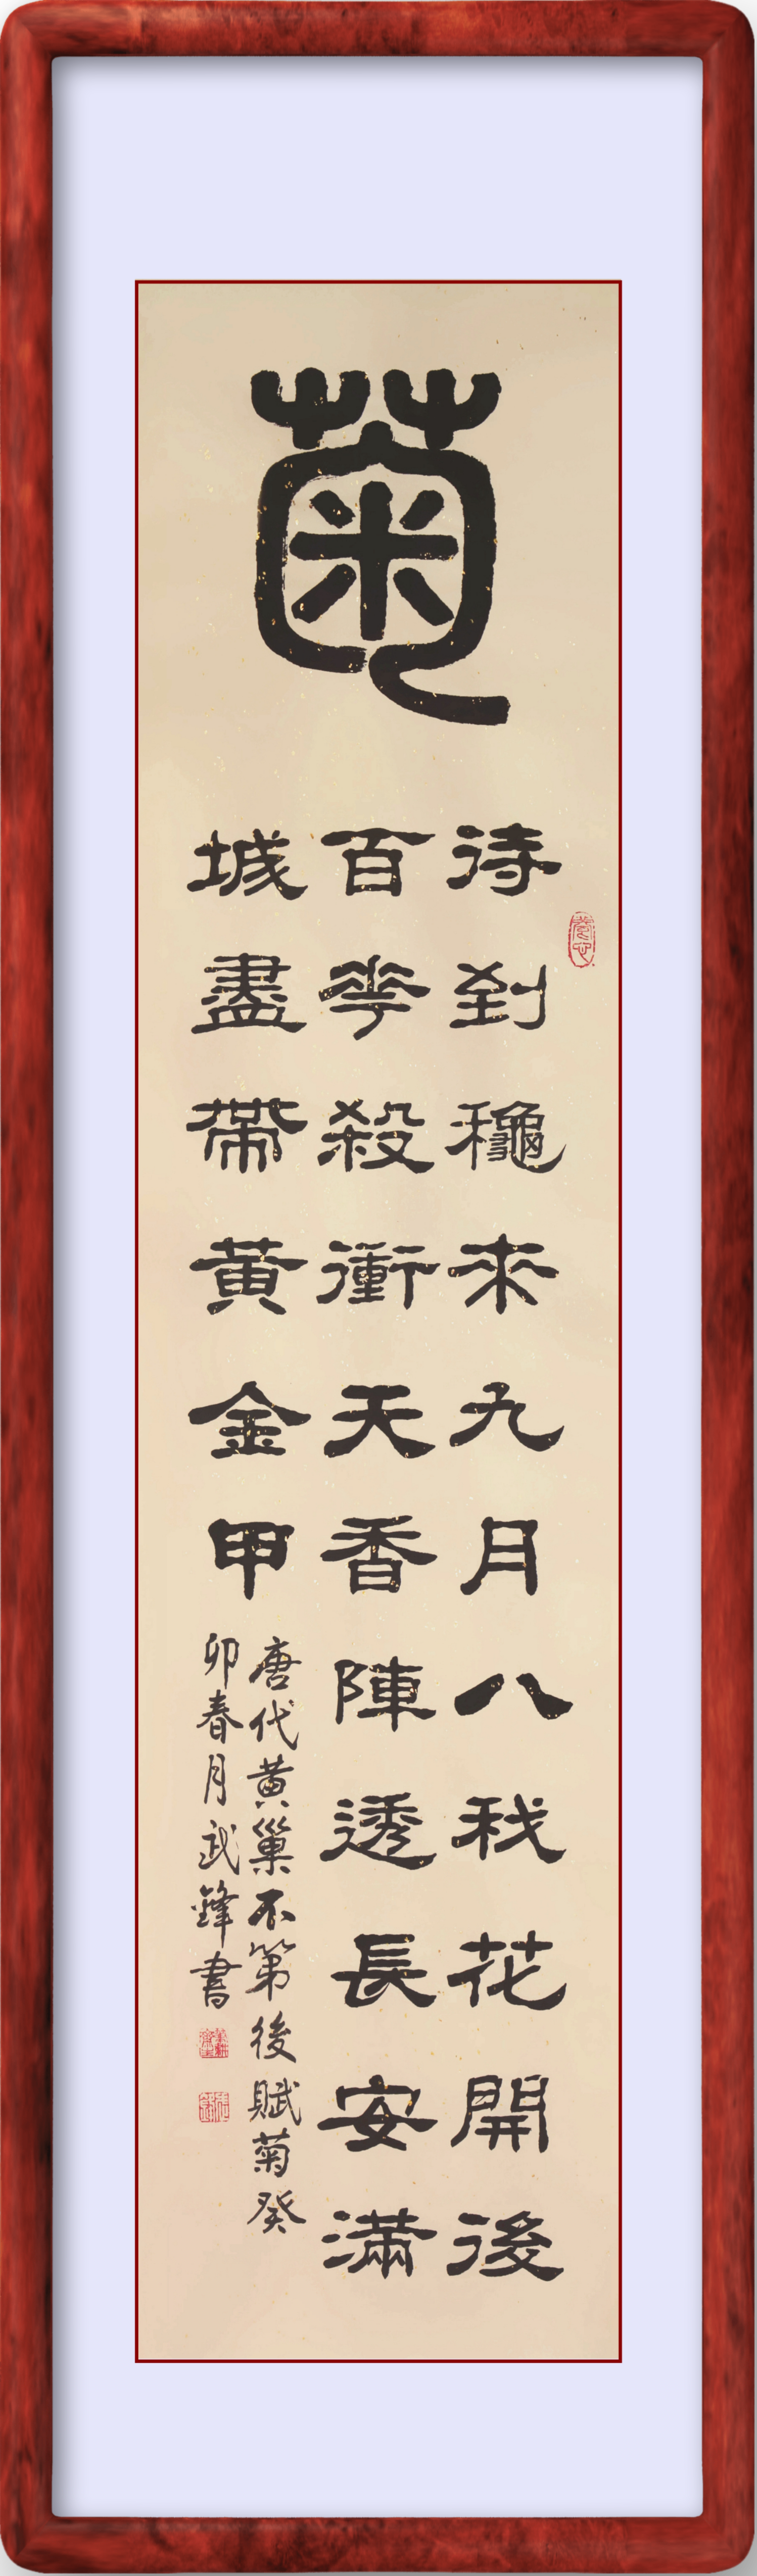 菊
待到龝来九月八我花開後
百華殺衝天香陣透長安滿
城盡帶黄金甲
唐代黄巢不第後賦菊癸
卯春月武鋒書